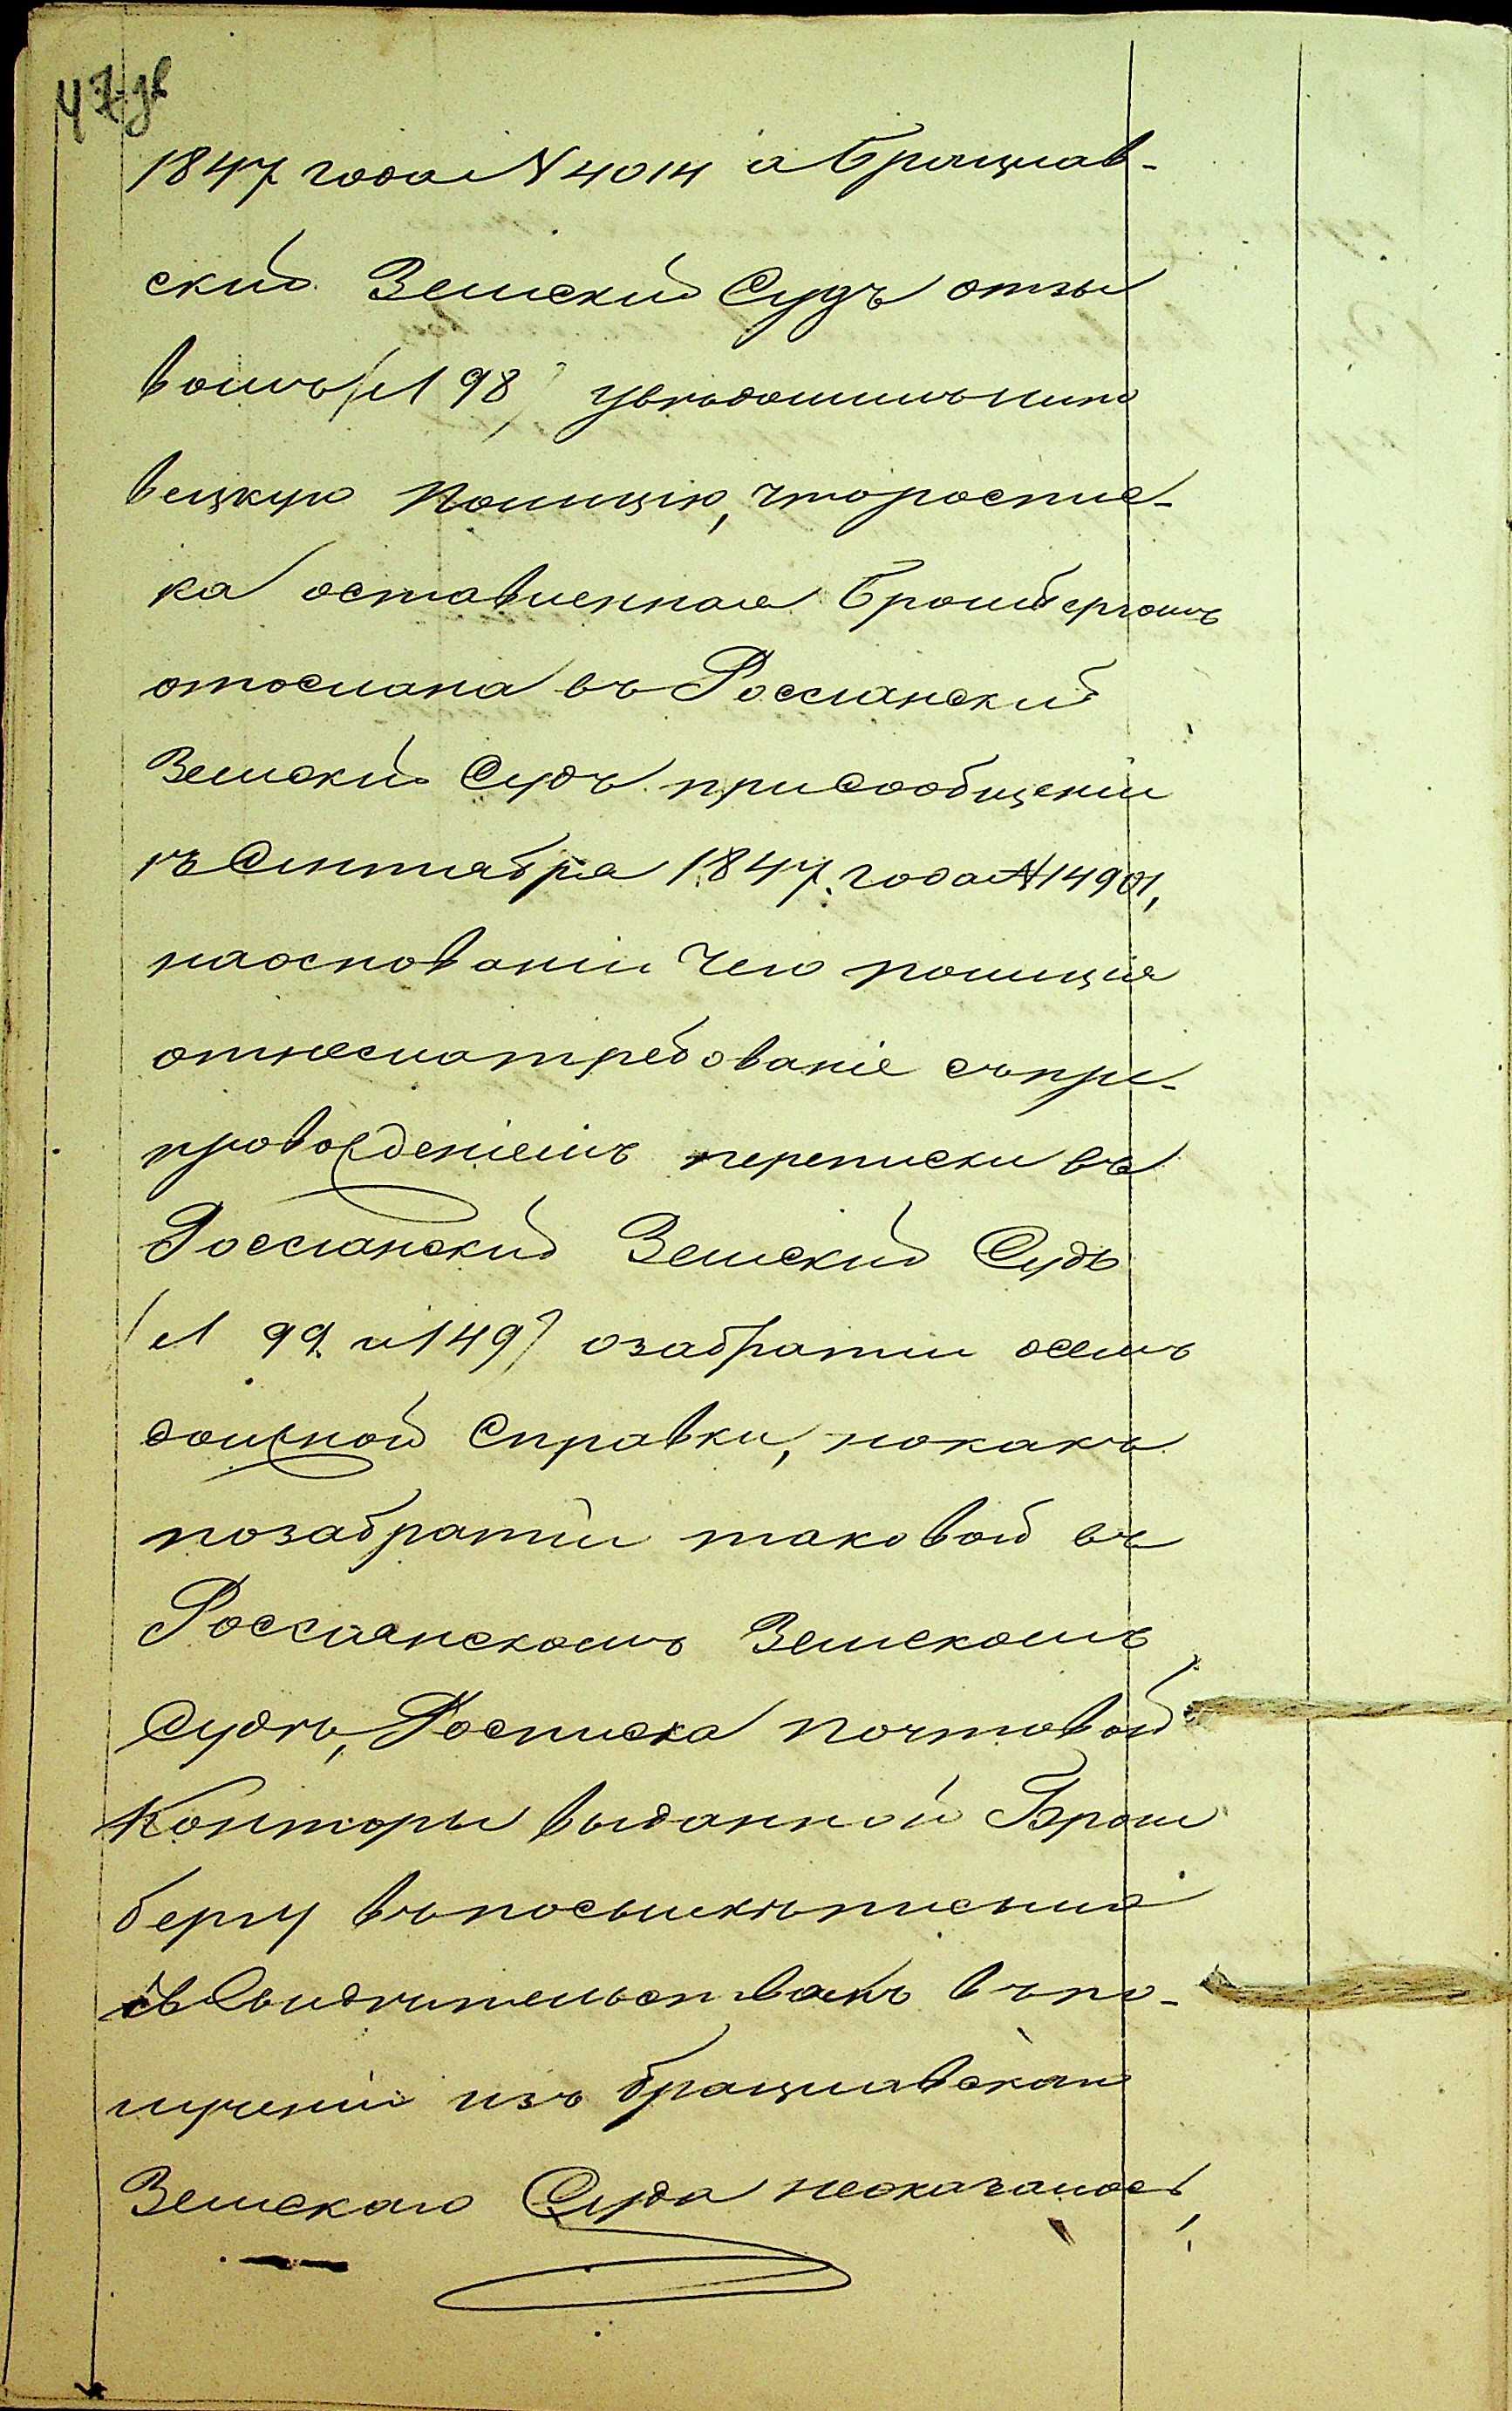 47 об
1847 года № 4014 а Брацлав-
ский Земский Судъ отзы
вомъ (л 98) увѣдомилъ Нико
вецкую Полицію, что роспис-
ка оставленная Бромбергомъ
отослана въ Россіянский
Земский Судъ при сообщеніи
Сентября 1847. года № 14901,
на основаніи чего полиція
отнесла требованіе съ пре-
провожденіемъ переписки въ
Россіянский Земский Судъ
(л 99 и 149) о забратіи о семъ
должной справки, но какъ
по забратіи таковой въ
Россіянскомъ Земскомъ
Судѣ, Росписка почтовой
Конторы выданной Бром
бергу въ посылкѣ писемъ
свидѣтельствамъ въ по-
лученіи изъ Брацлавскаго
Земскаго Суда неоказалось,